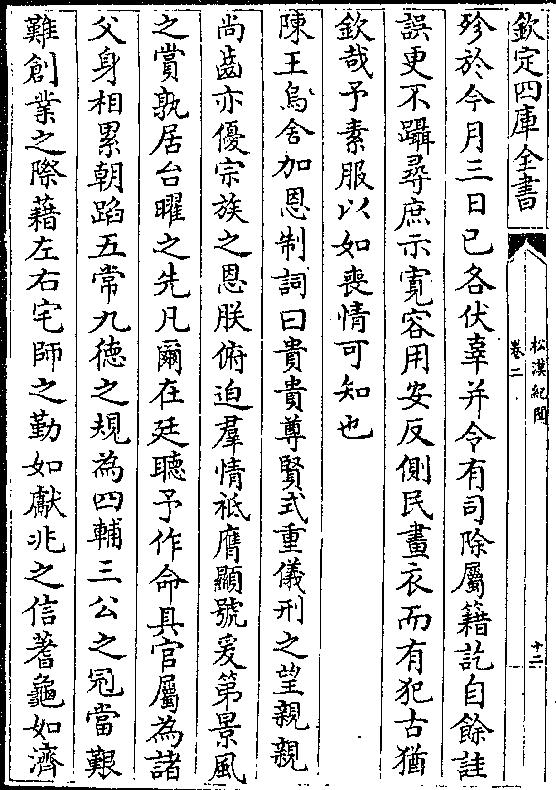 欽定四庫全書
松漠紀聞
卷二
十二
殄於今月三日已各伏辜并令有司除屬籍訖自餘詿
誤更不躡尋庶示寛容用安反側民畫衣而有犯古猶
欽哉予素服以如喪情可知也
陳王烏舍加恩制詞曰貴貴尊賢式重儀刑之望親親
尚齒亦優宗族之恩朕俯迫羣情祗膺顯號爰第景風
之賞孰居台曜之先凡爾在廷聽予作命具官屬為諸
父身相累朝蹈五常九徳之規為四輔三公之冠當艱
難創業之際藉左右宅師之勤如獻兆之信蓍龜如濟